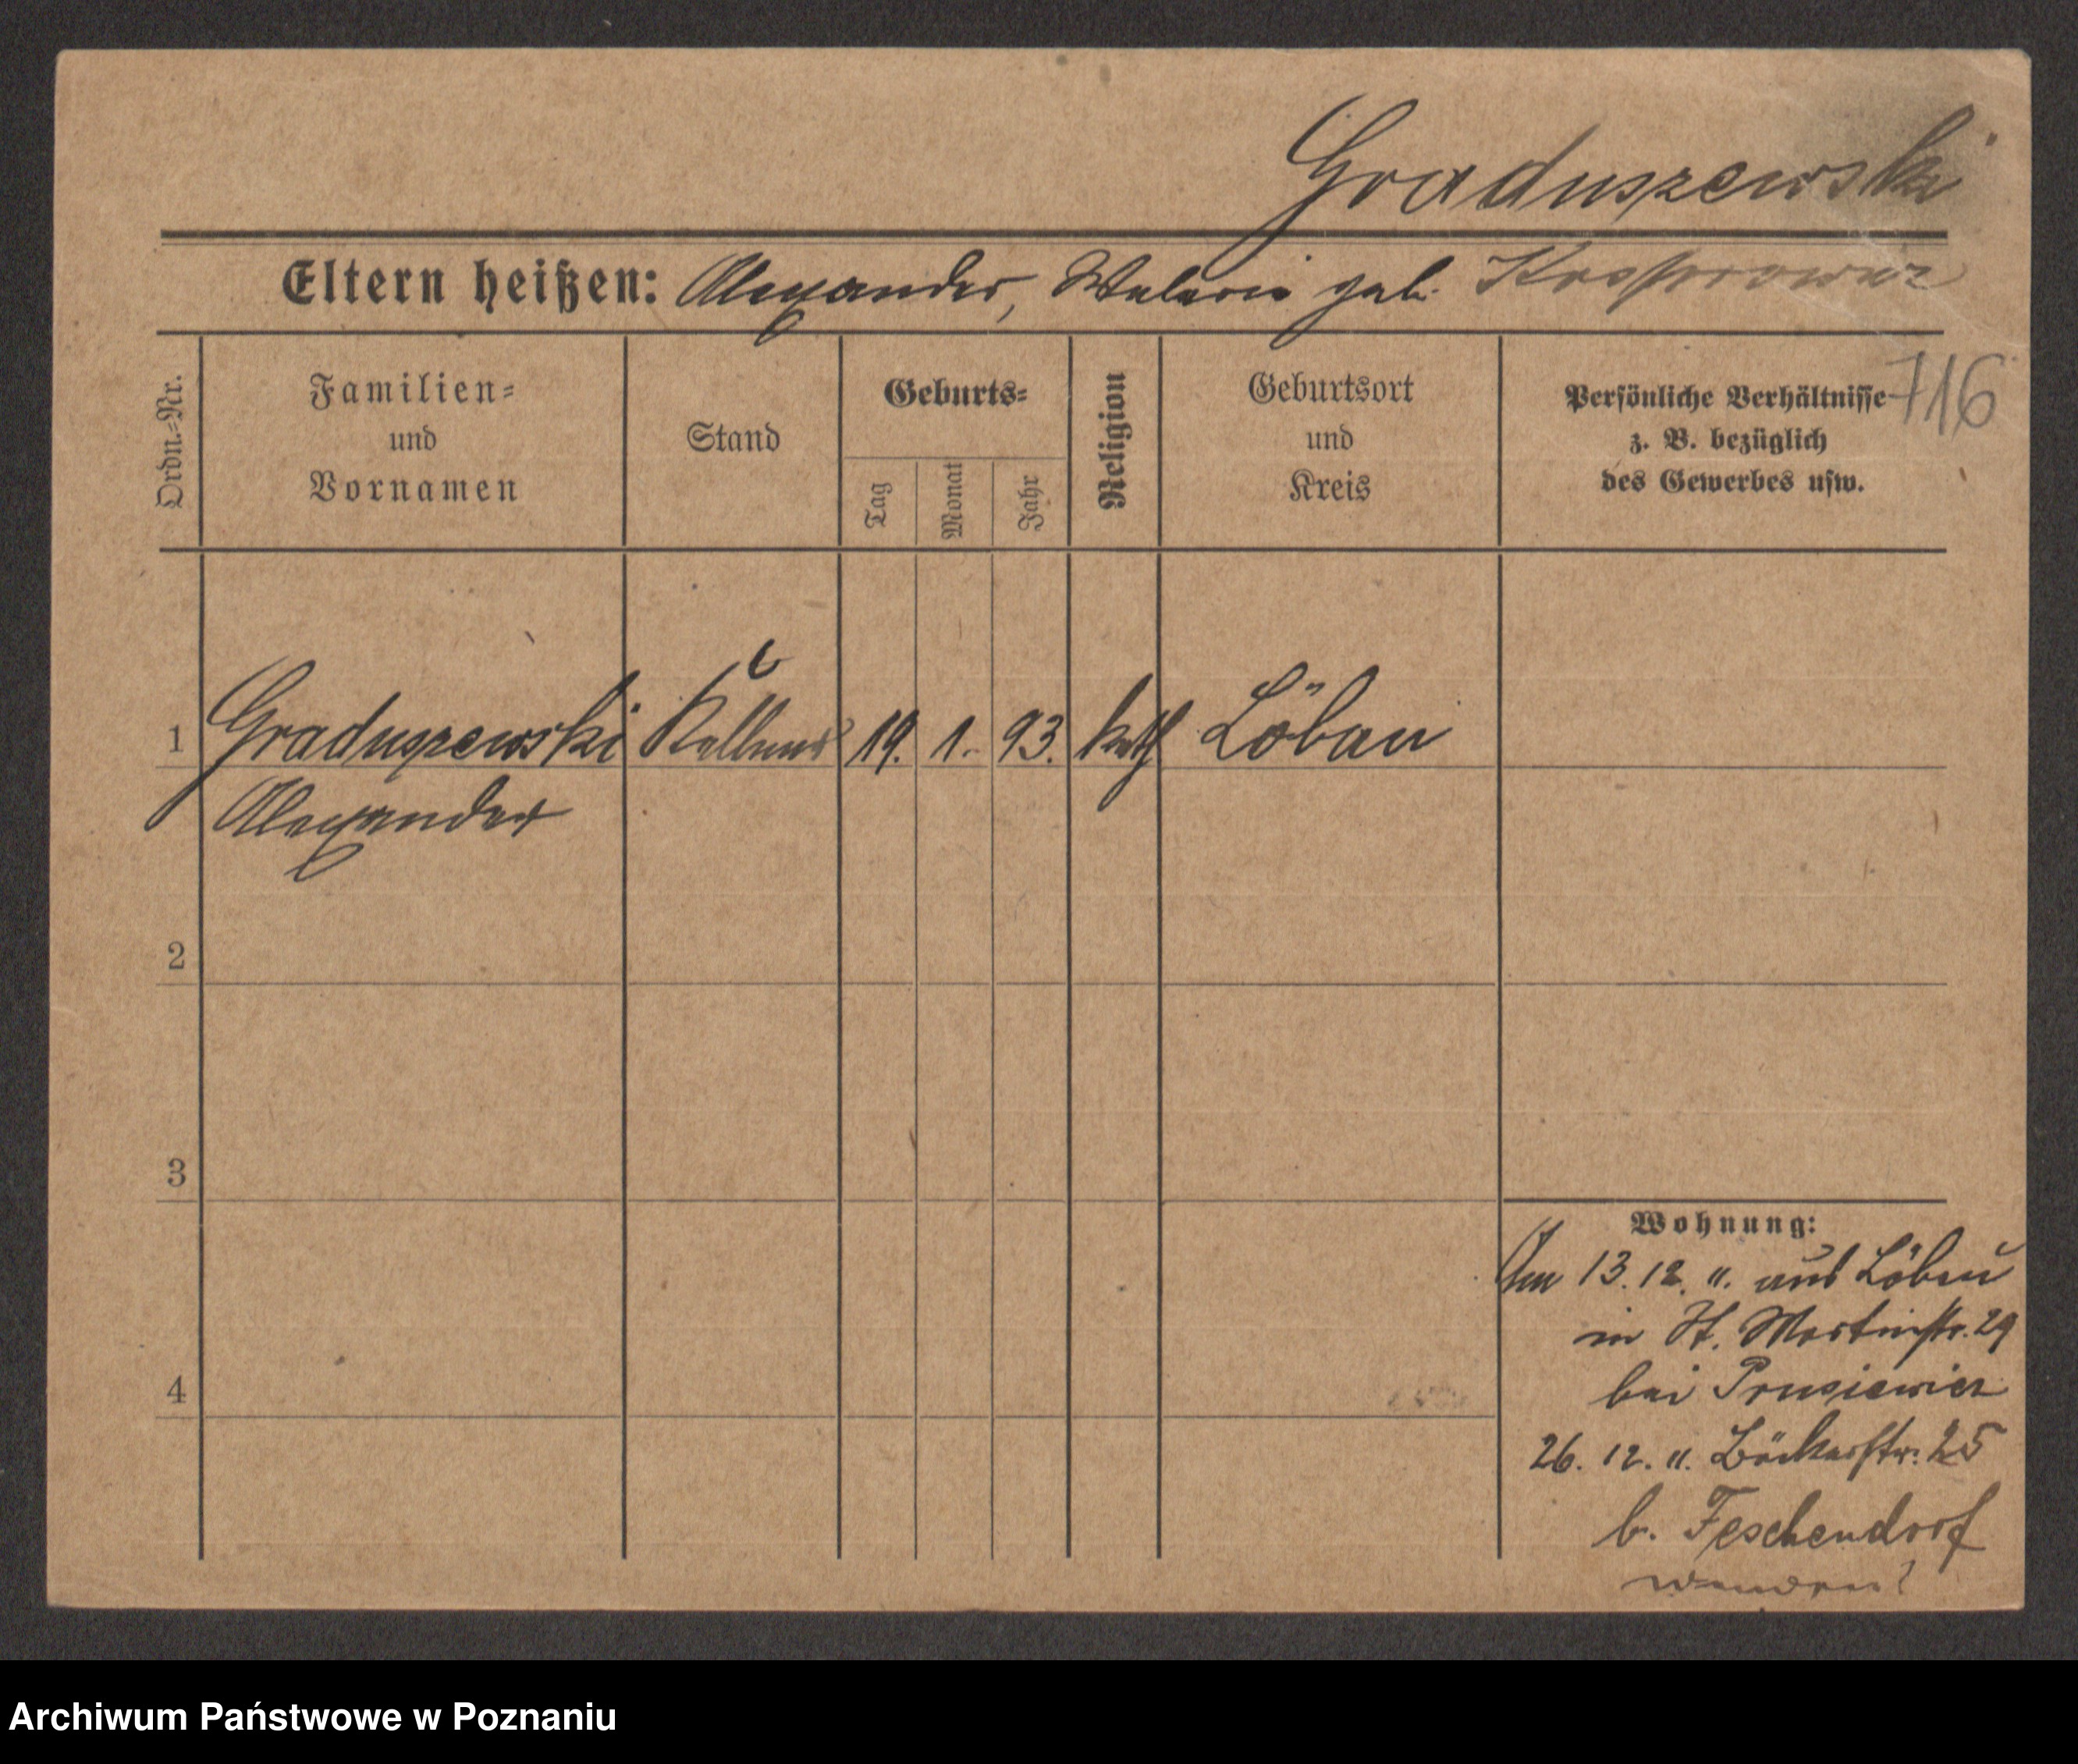 Graduszewski
Eltern heißen: Alexander, Waleria geb. Kasprowicz
716
Ordn.-Nr.
Familien-
und
Vornamen
Stand
Geburts-
Tag
Monat
Jahr
Religion
Geburtsort
und
Kreis
Persönliche Verhältnisse
z. B. bezüglich
des Gewerbes usw.
1 Graduszewski Kellner 19. 1. 93. kath Löbau
Alexander
2
3
4
Wohnung:
Am 13. 12. 11. aus Löbau
in St. Martinstr. 29
bei Prusiewicz
26. 12. 11. Bäckerstr. 25
b. Feschendorf
wenden!
Archiwum Państwowe w Poznaniu